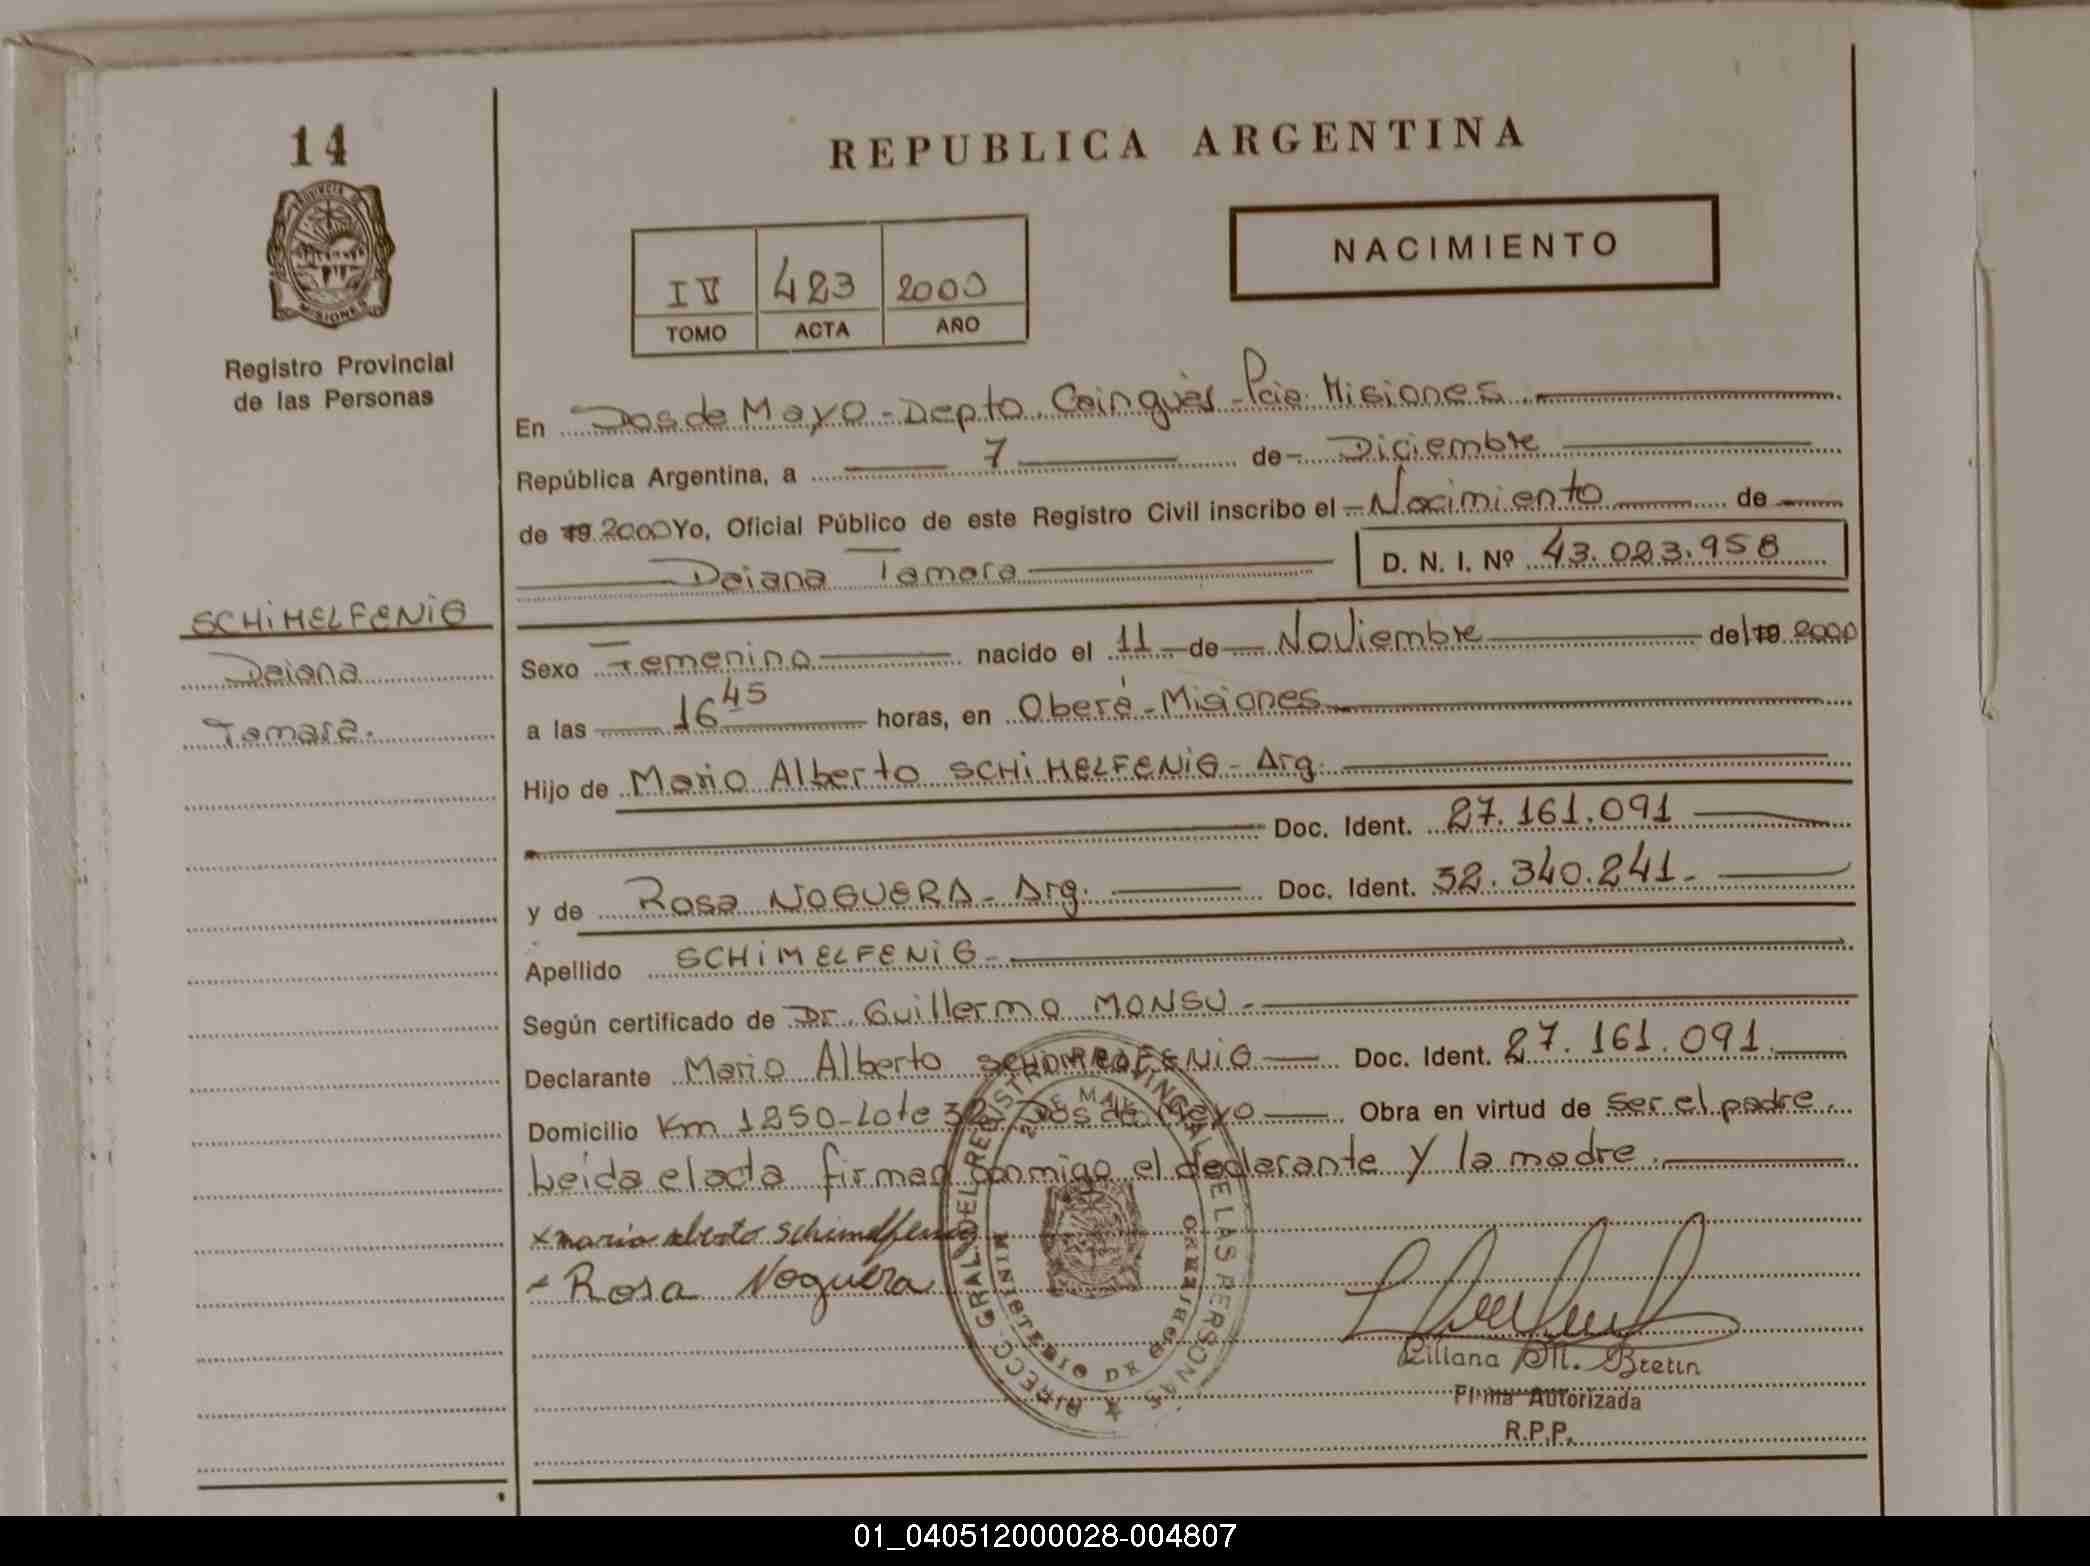 14
PROVINCIA DE
MISIONES
Registro Provincial
de las Personas
REPUBLICA ARGENTINA
NACIMIENTO
IV 423 2000
TOMO ACTA AÑO
En Dos de Mayo - Depto. Cainguàs - Pcia. Misiones
República Argentina, a 7 de Diciembre
de 19 2000 Yo, Oficial Público de este Registro Civil inscribo el Nacimiento de
Daiana Tamara D. N. I. Nº 43.023.958
SCHiMELFENiG
Daiana
Tamara.
Sexo Femenino nacido el 11 de Noviembre del 19 2000
a las 16 45 horas, en Oberá - Misiones
Hijo de Mario Alberto SCHiMELFENiG - Arg.
Doc. Ident. 27.161.091
y de Rosa NOGUERA - Arg. Doc. Ident. 32.340.241.-
Apellido SCHiMELFENiG -
Según certificado de Dr. Guillermo MONSU -
Declarante Mario Alberto SCHiMELFENiG Doc. Ident. 27.161.091
Domicilio Km 1250 - Lote 32 - Dos de Mayo Obra en virtud de ser el padre.
Leída el acta firman conmigo el declarante y la madre.
x mario alberto schimelfenig
x Rosa Noguera
DIRECC. GRAL. DEL REGISTRO PROVINCIAL DE LAS PERSONAS
MINISTERIO DE GOBIERNO
2 DE MAYO
Liliana M. Bretin
Firma Autorizada
R.P.P.
01_040512000028-004807